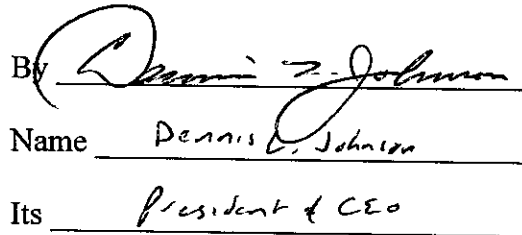 By Dennis L. Johnson
Name Dennis L. Johnson
Its President & CEO